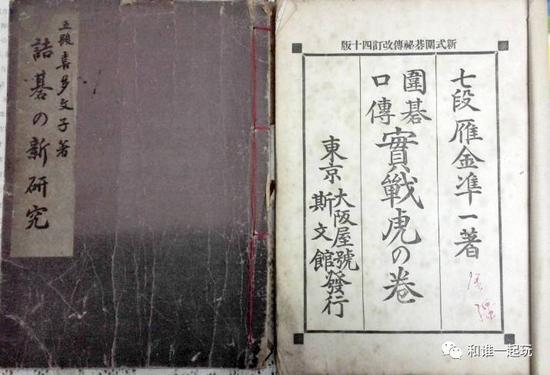 五段 喜多文子著
詰碁の新研究
新式圍碁祕傳改訂四十版
七段 雁金凖一著
圍碁口傳 實戰虎の卷
東京 大阪屋號 斯文館 發行
和谁一起玩